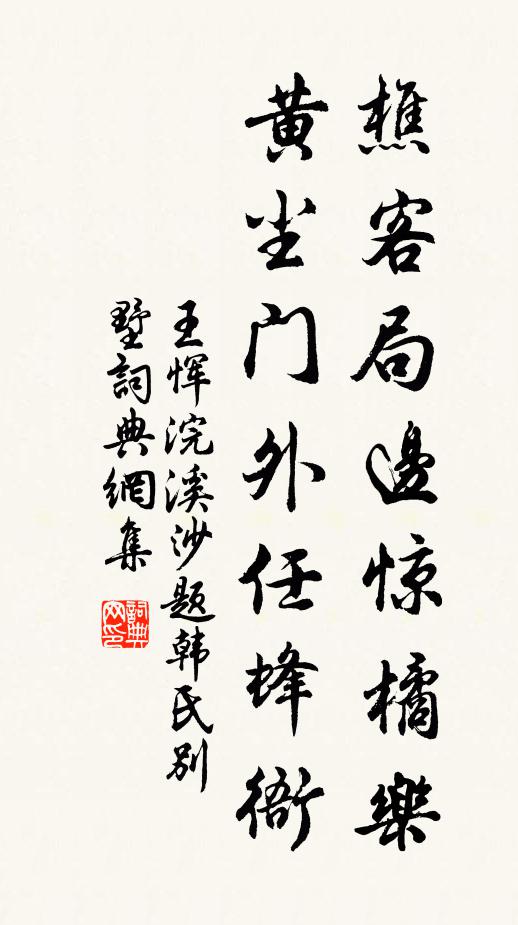 樵客局邊惊橘樂
黄尘门外任蜂衙
王恽浣溪沙题韩氏别
墅詞典網集
詞典网印